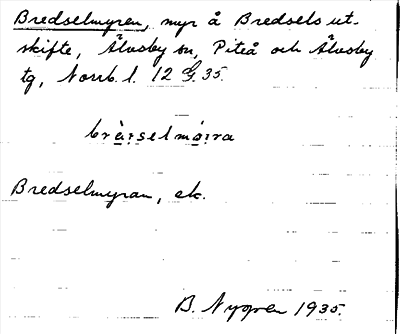 Bredselmyren, myr å Bredsels ut-
skifte, Älvsby sn, Piteå och Älvsby
tg, Norrb. l. 12 G. 35.
brä̀rselmø̀ira
Bredselmyran, ek.
B. Nygren 1935.